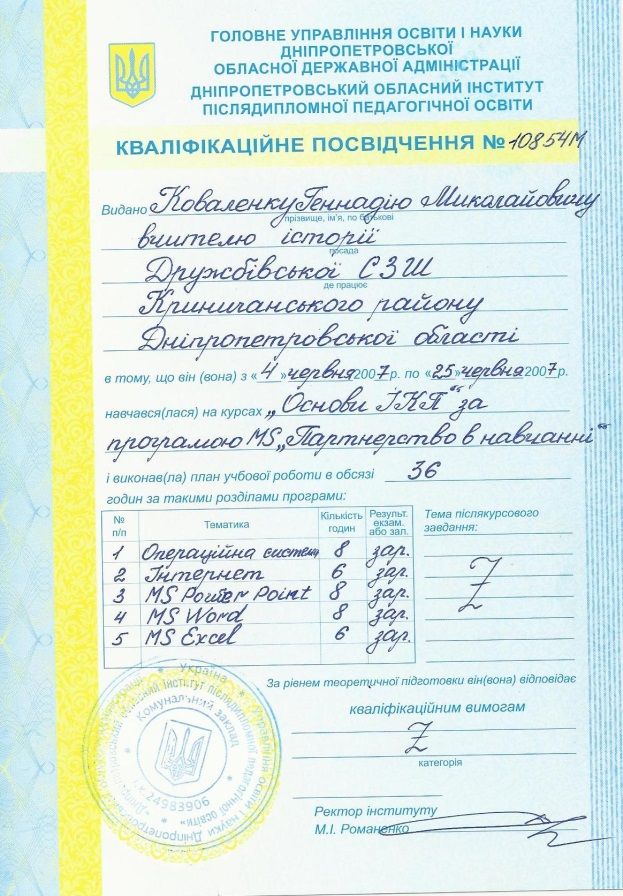 ГОЛОВНЕ УПРАВЛІННЯ ОСВІТИ І НАУКИ
ДНІПРОПЕТРОВСЬКОЇ
ОБЛАСНОЇ ДЕРЖАВНОЇ АДМІНІСТРАЦІЇ
ДНІПРОПЕТРОВСЬКИЙ ОБЛАСНИЙ ІНСТИТУТ
ПІСЛЯДИПЛОМНОЇ ПЕДАГОГІЧНОЇ ОСВІТИ
КВАЛІФІКАЦІЙНЕ ПОСВІДЧЕННЯ № 10854М
Видано Коваленку Геннадію Миколайовичу
прізвище, ім'я, по батькові
вчителю історії
посада
Дружбівської СЗШ
де працює
Криничанського району
Дніпропетровської області
в тому, що він (вона) з «4» червня 2007 р. по «25» червня 2007 р.
навчався(лася) на курсах „Основи ІКТ" за
програмою MS „Партнерство в навчанні"
і виконав(ла) план учбової роботи в обсязі 36
годин за такими розділами програми:
№ п/п Тематика Кількість годин Результ. екзам. або зал.
1 Операційна систем 8 зар.
2 Інтернет 6 зар.
3 MS Power Point 8 зар.
4 MS Word 8 зар.
5 MS Excel 6 зар.
Тема післякурсового
завдання:
Z
За рівнем теоретичної підготовки він(вона) відповідає
кваліфікаційним вимогам
Z
категорія
Ректор інституту
М.І. Романенко
Україна
Комунальний заклад
24983906